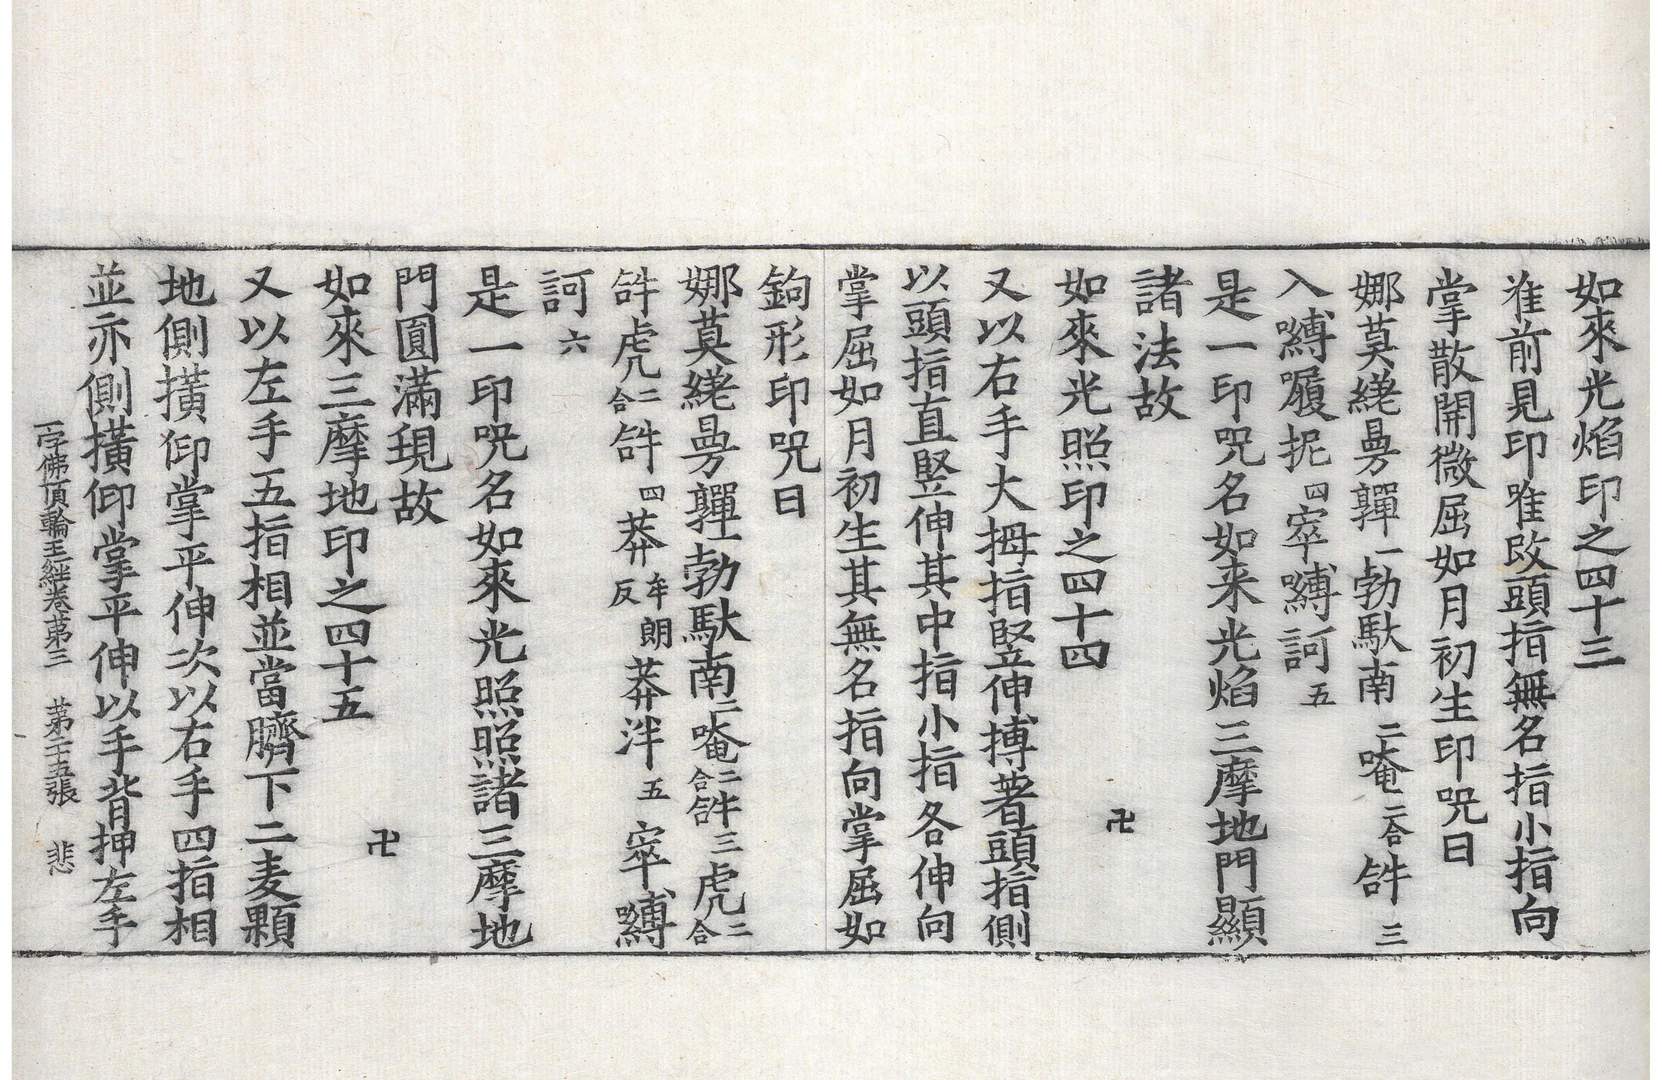 如來光焰印之四十三
准前見印唯改頭指無名指小指向
掌散開微屈如月初生印咒曰
娜莫縒曼軃一勃馱南二唵二合𤙖三
入嚩囇抳四窣嚩訶五
是一印咒名如来光焰三摩地門顯
諸法故
如來光照印之四十四 卍
又以右手大拇指竪伸搏著頭指側
以頭指直竪伸其中指小指各伸向
掌屈如月初生其無名指向掌屈如
鉤形印咒曰
娜莫縒曼軃一勃馱南二唵二合𤙖三虎二合
𤙖虎二合𤙖四莽牟朗反莽泮五窣嚩
訶六
是一印咒名如來光照照諸三摩地
門圓滿現故
如來三摩地印之四十五 卍
又以左手五指相並當臍下二麦顆
地側擴仰掌平伸次以右手四指相
並亦側擴仰掌平伸以手背押左手
一字佛頂輪王經卷苐三 苐二十五張 悲